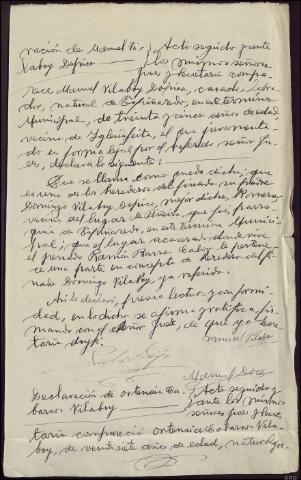 ración de Manuel Vi- } Acto seguido y ante
laboy Espiño ——— los mismos señores
Juez y Secretario compa-
rece Manuel Vilaboy Espiña, casado, labra-
dor, natural de Espiñaredo, en este término
Municipal, de treinta y cinco años de edad
vecino de Iglesiafeita, el que juramenta-
do en forma legal por el referido señor Ju-
ez, declara lo siguiente:
Que se llama como queda dicho; que
es uno de los herederos del finado su padre
Domingo Vilaboy Espiño, mejor dicho, Romero,
vecino del lugar de que fué, parro-
quia de Espiñaredo, en este término Munici-
pal; que el lugar acasarado donde vive
el penado Ramón Barro Caboy le pertene-
ce una parte en concepto de heredero del fi-
nado Domingo Vilaboy ya referido.
Así lo declaró, previa lectura y conformi-
dad, en lo dicho se afirma y ratifica fir-
mando con el señor Juez, de que yo Secre-
tario doy fé.
Manuel Vilaboy
Manuel
Declaración de Ortensia Ca- } Acto seguido y
barcos Vilaboy ——— ante los mismos
señores Juez y Secre-
taria compareció Ortensia Cabarcos Vila-
boy, de veintisiete años de edad, natural y ve-